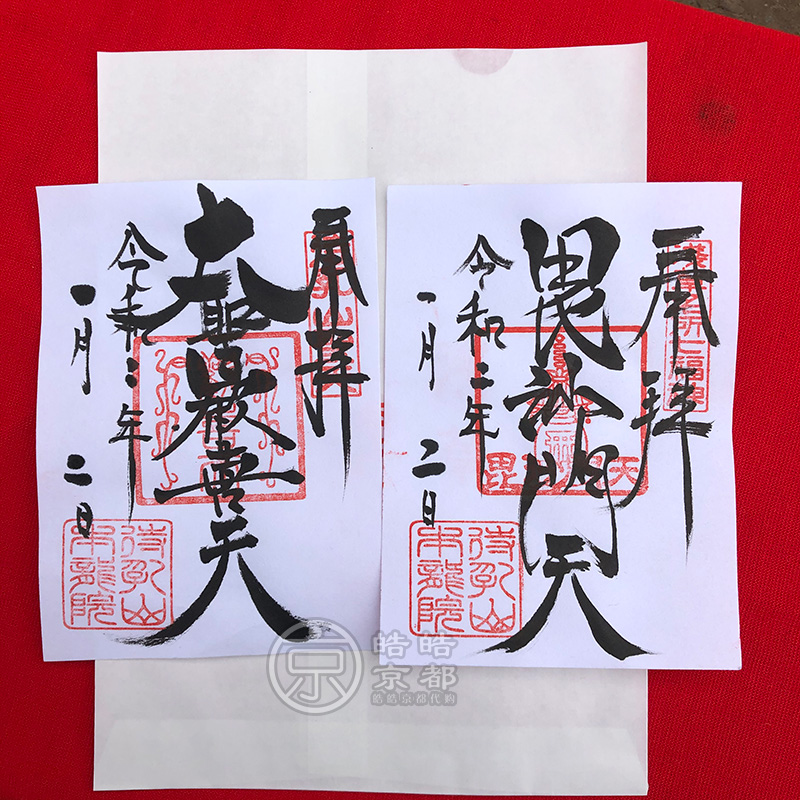 奉拝
大聖歓喜天
令和二年
一月 二日
待乳山
本龍院
奉拝
毘沙門天
令和二年
一月 二日
待乳山
本龍院
京
皓皓
京都
皓皓京都代购